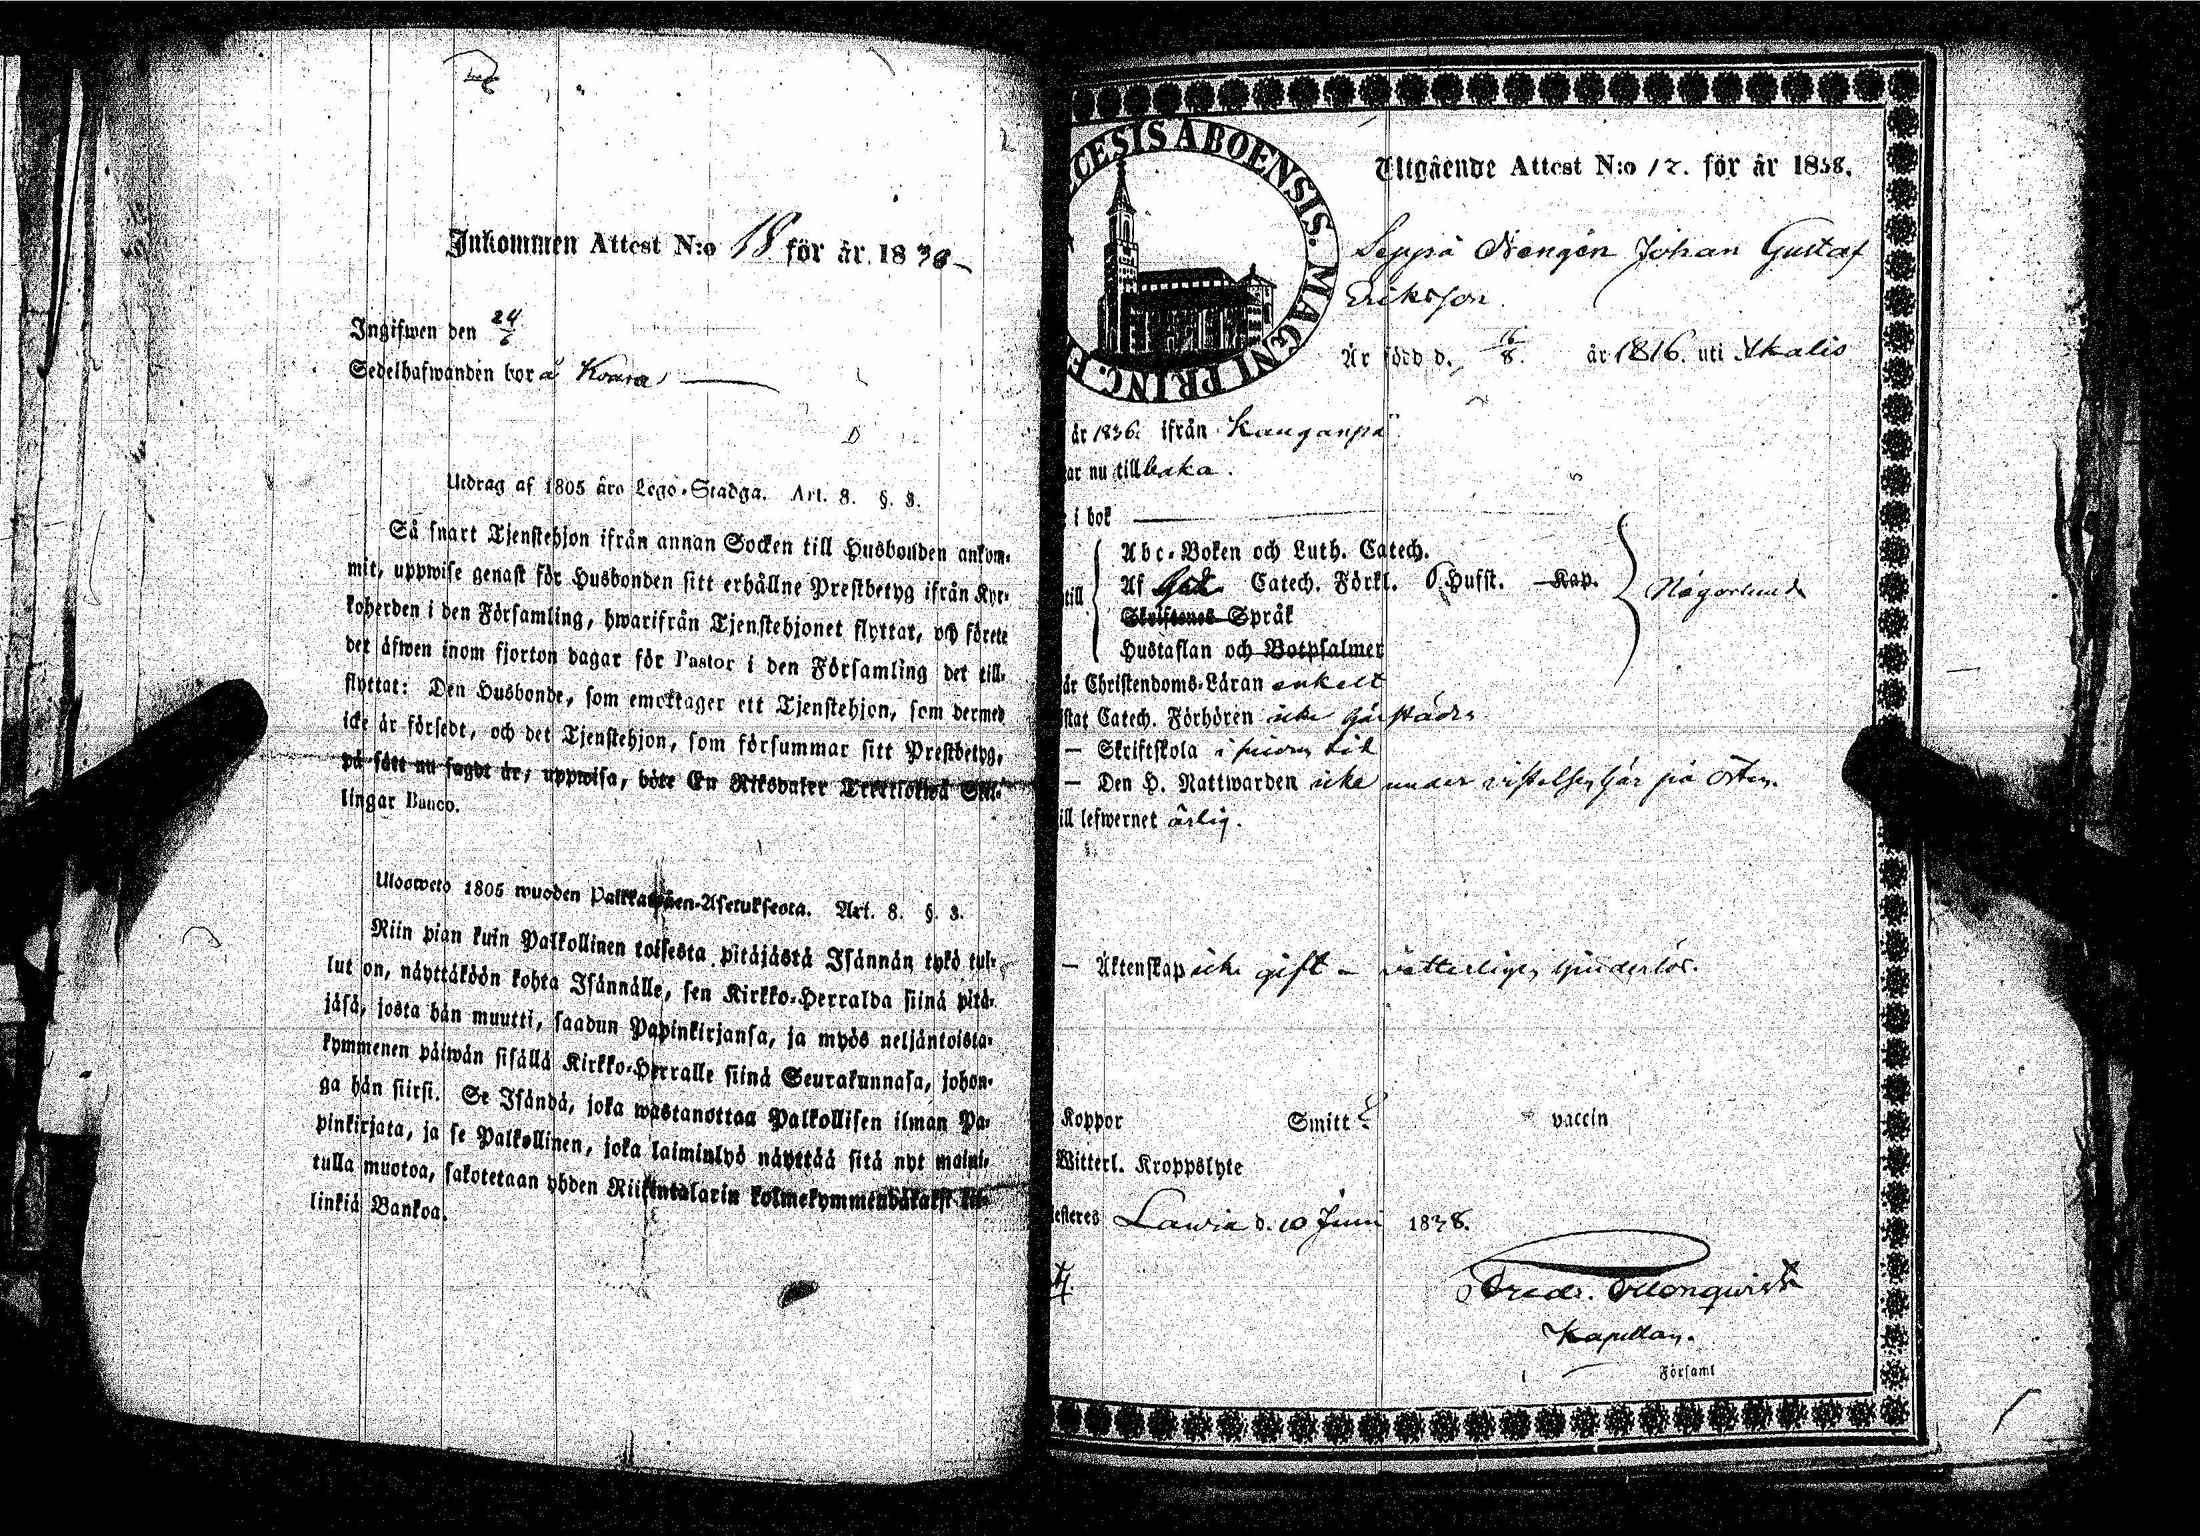 Inkommen Attest N:o 18 för år 1838
Ingifwen den 24/6
Sedelhafwanden bor å
Utdrag af 1805 års Lego-Stadga. Art. 8. §. 3.
Så snart Tjenstehjon ifrån annan Socken till Husbonden ankom-
mit, uppwise genast för Husbonden sitt erhållne Prestbetyg ifrån Kyr-
koherden i den Församling, hwarifrån Tjenstehjonet flyttat, och förete
det äfwen inom fjorton dagar för Pastor i den Församling det till-
flyttat: Den Husbonde, som emottager ett Tjenstehjon, som dermed
icke är försedt, och det Tjenstehjon, som försummar sitt Prestbetyg,
på sätt nu sagdt är, uppwisa, böte En Riksdaler Trettiotwå Skil-
lingar Banco.
Ulosweto 1805 wuoden Palkkawäen-Asetuksesta. Art. 8. §. 3.
Niin pian kuin Palkollinen toisesta pitäjästä Isännän tykö tul-
lut on, näyttäköön kohta Isännälle, sen Kirkko-Herralda siinä pitä-
jäsä, josta hän muutti, saadun Papinkirjansa, ja myös neljäntoista-
kymmenen päiwän sisällä Kirkko-Herralle siinä Seurakunnasa, johon-
ga hän siirsi. Se Isändä, joka wastanottaa Palkollisen ilman Pa-
pinkirjata, ja se Palkollinen, joka laiminlyö näyttää sitä nyt maini-
tulla muotoa, sakotetaan yhden Riikintalarin kolmekymmendäkaksi kil-
linkiä Bankoa.
CESIS ABOENSIS. MAGNI PRINC. F
Utgående Attest N:o 12. för år 1838.
Seppä Johan Gustaf
Eriksson.
Är född d. 6/8. år 1816. uti Ikalis
år 1836. ifrån Kanganpä
ar nu tillbaka.
i bok
till
Abc-Boken och Luth. Catech.
Af Catech. Förkl. Husst. Kap.
Skriftenes Språk
Hustaflan och Botpsalmer
Någorlunda
är Christendoms-Läran enkelt
stat Catech. Förhören icke härstädes
— Skriftskola i tid
— Den H. Nattwarden icke under vistelsen här på orten.
ill lefwernet ärlig.
— Äktenskap icke gift - vetterligen hinderlös.
Koppor Smitt vaccin
Witterl. Kroppslyte
esteres Lawia d. 10 Juni 1838.
Fredr.
Kapellan.
Församl